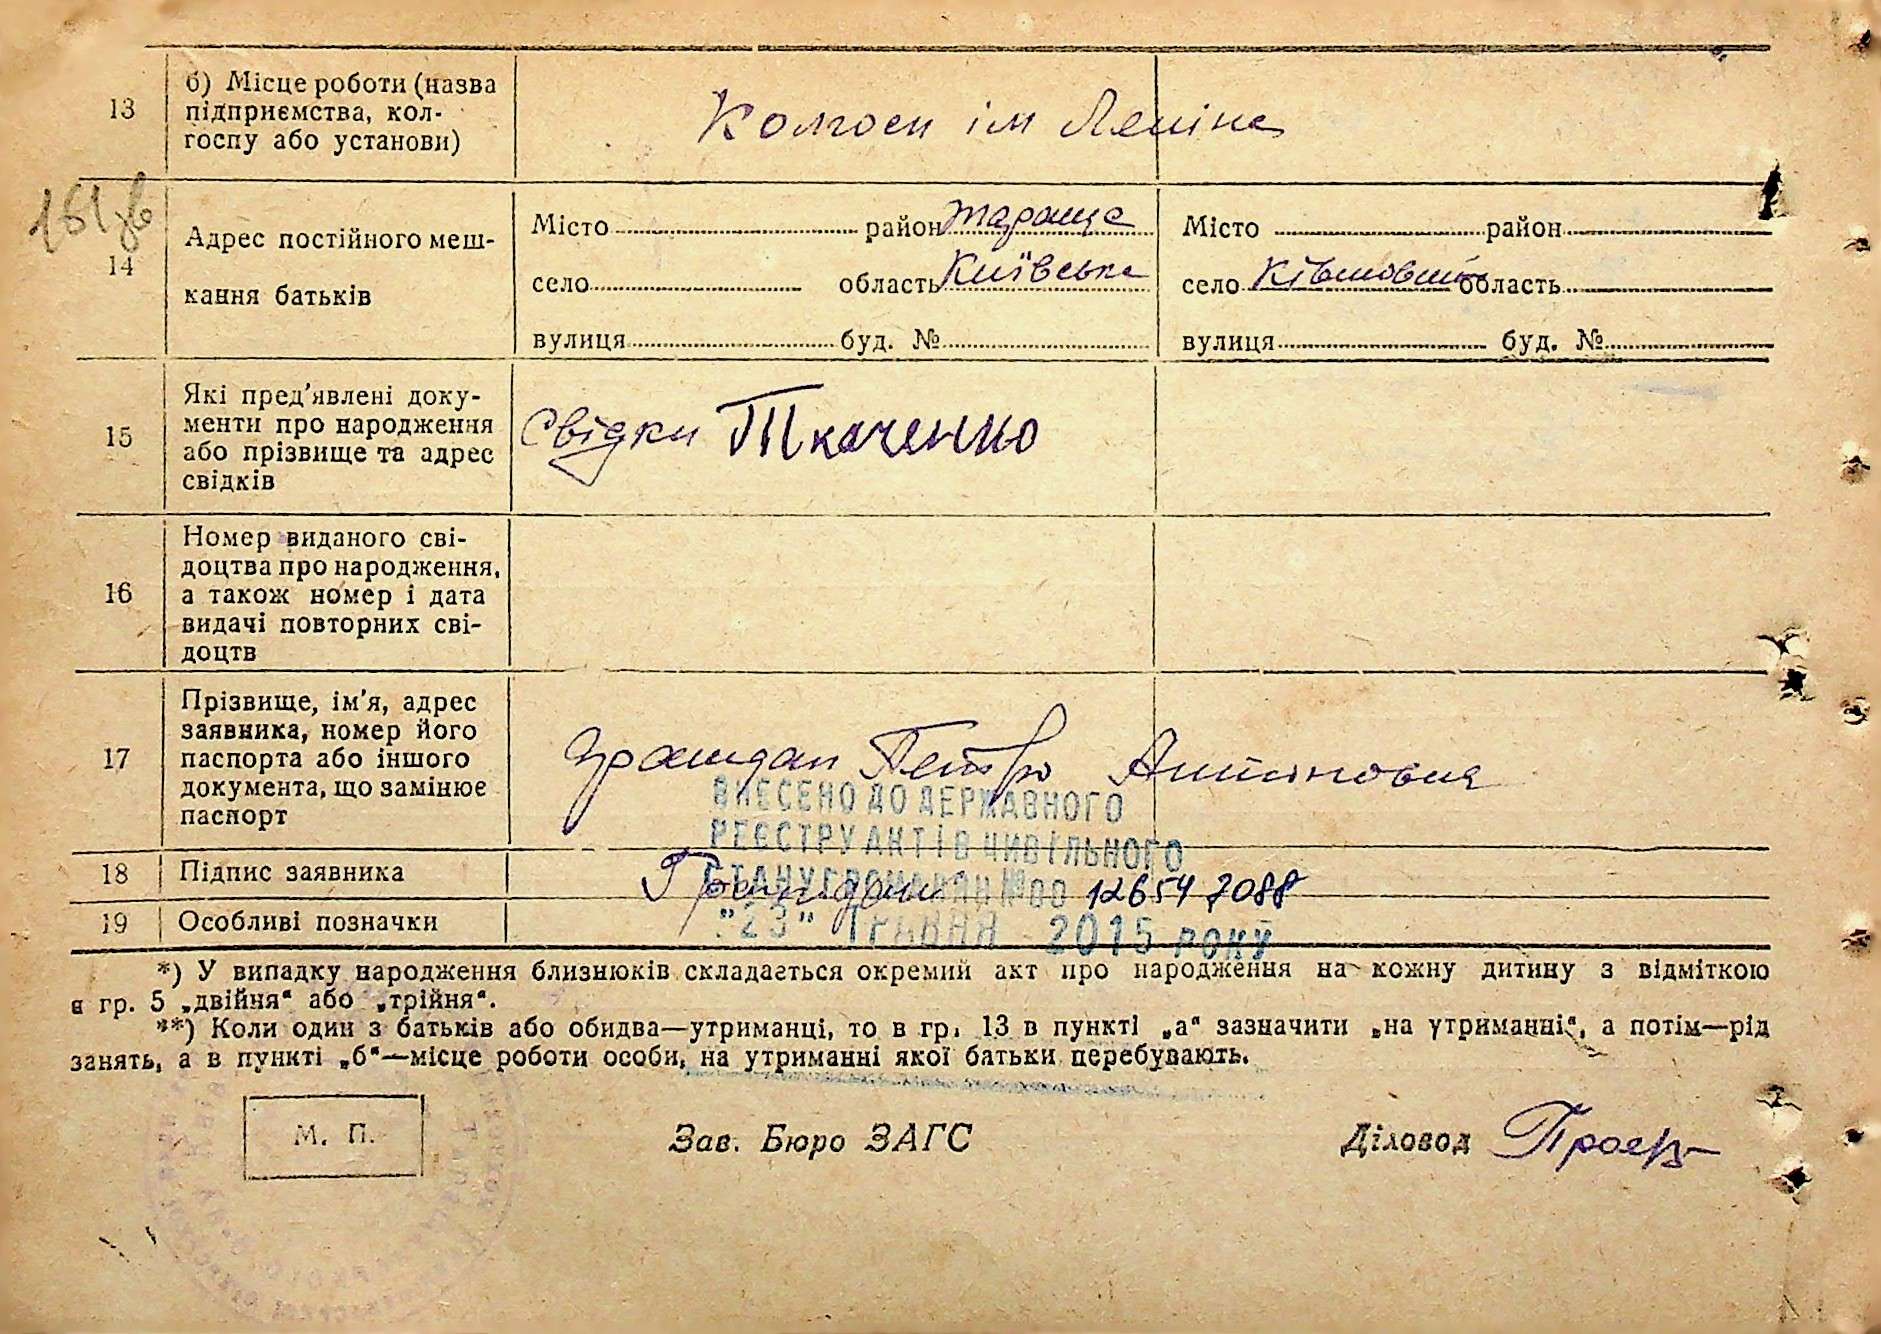 13
б) Місце роботи (назва
підприємства, кол-
госпу або установи)
Колгосп ім Леніна
181 зв
14
Адрес постійного меш-
кання батьків
Місто район Тараща
село область Київська
вулиця буд. №
Місто район
село Ківшовата область
вулиця буд. №
15
Які пред'явлені доку-
менти про народження
або прізвище та адрес
свідків
Свідки Ткаченко
16
Номер виданого сві-
доцтва про народження,
а також номер і дата
видачі повторних сві-
доцтв
17
Прізвище, ім'я, адрес
заявника, номер його
паспорта або іншого
документа, що замінює
паспорт
Грамидан Петро
ВНЕСЕНО ДО ДЕРЖАВНОГО
РЕЄСТРУ АКТІВ ЦИВІЛЬНОГО
СТАНУ ГРОМАДЯН №00 126547088
"23" ТРАВНЯ 2015 РОКУ
18
Підпис заявника
19
Особливі позначки
*) У випадку народження близнюків складається окремий акт про народження на кожну дитину з відміткою
в гр. 5 „двійня“ або „трійня“.
**) Коли один з батьків або обидва—утриманці, то в гр. 13 в пункті „а“ зазначити „на утриманні“, а потім—рід
занять, а в пункті „б“—місце роботи особи, на утриманні якої батьки перебувають.
М. П.
Зав. Бюро ЗАГС
Діловод